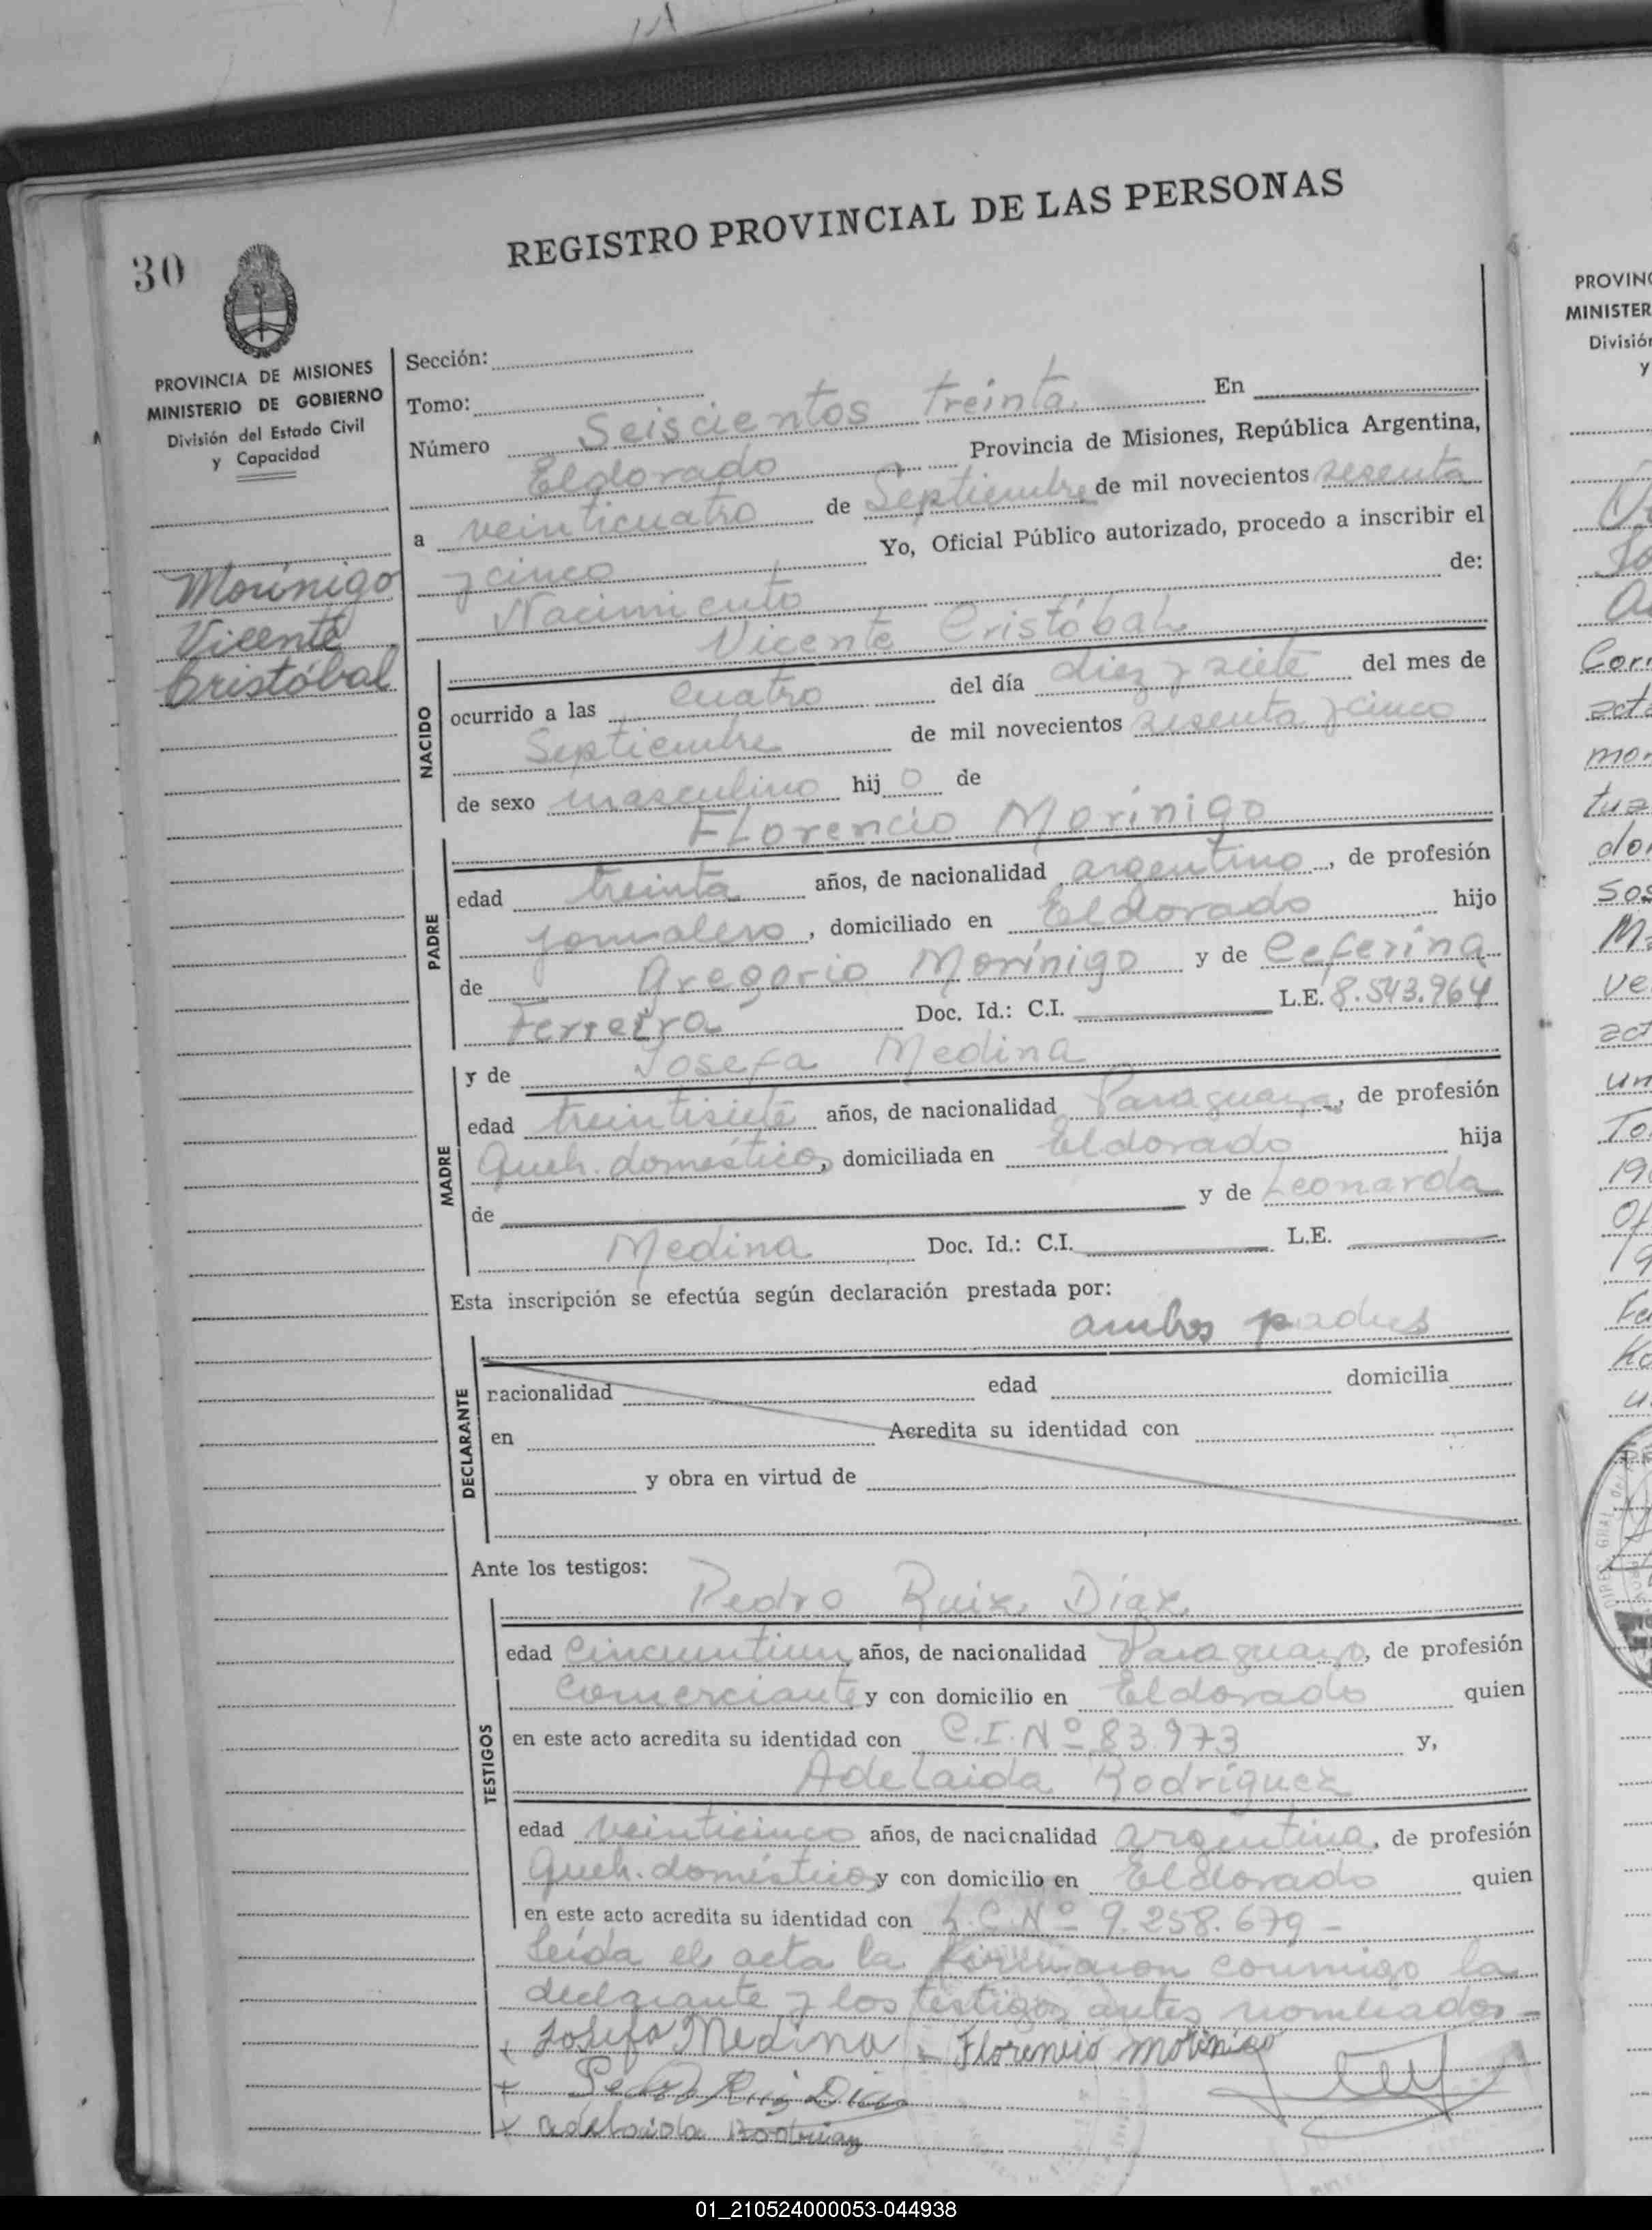 REGISTRO PROVINCIAL DE LAS PERSONAS
30
PROVINCIA DE MISIONES
MINISTERIO DE GOBIERNO
División del Estado Civil
y Capacidad
Morínigo
Vicente
Cristóbal
Sección:
Tomo:
Número Seiscientos treinta En
Eldorado Provincia de Misiones, República Argentina,
a veinticuatro de Septiembre de mil novecientos sesenta
y cinco Yo, Oficial Público autorizado, procedo a inscribir el
Nacimiento de:
Vicente Cristóbal
NACIDO
ocurrido a las cuatro del día diez y siete del mes de
Septiembre de mil novecientos sesenta y cinco
de sexo masculino hij o de
Florencio Morínigo
PADRE
edad treinta años, de nacionalidad argentino, de profesión
jornalero, domiciliado en Eldorado hijo
de Gregorio Morínigo y de Ceferina
Ferreira Doc. Id.: C.I. L.E. 8.543.964
MADRE
y de Josefa Medina
edad treintisiete años, de nacionalidad Paraguaya, de profesión
Queh. domésticos, domiciliada en Eldorado hija
de y de Leonarda
Medina Doc. Id.: C.I. L.E.
Esta inscripción se efectúa según declaración prestada por:
ambos padres
DECLARANTE
nacionalidad edad domicilia
en Acredita su identidad con
y obra en virtud de
Ante los testigos:
Pedro Ruiz Díaz
TESTIGOS
edad años, de nacionalidad Paraguayo, de profesión
comerciante y con domicilio en Eldorado quien
en este acto acredita su identidad con C.I. Nº 83.973 y,
Adelaida Rodríguez
edad veinticinco años, de nacionalidad argentina, de profesión
Queh. domésticos y con domicilio en Eldorado quien
en este acto acredita su identidad con L.C. Nº 9.258.679 -
Leída el acta la firmaron conmigo la
declarante y los testigos antes nombrados -
Josefa Medina - Florencio Morínigo
Pedro Ruiz Diaz
adelaida Rodriguez
PROVINC
MINISTER
División
y
01_210524000053-044938